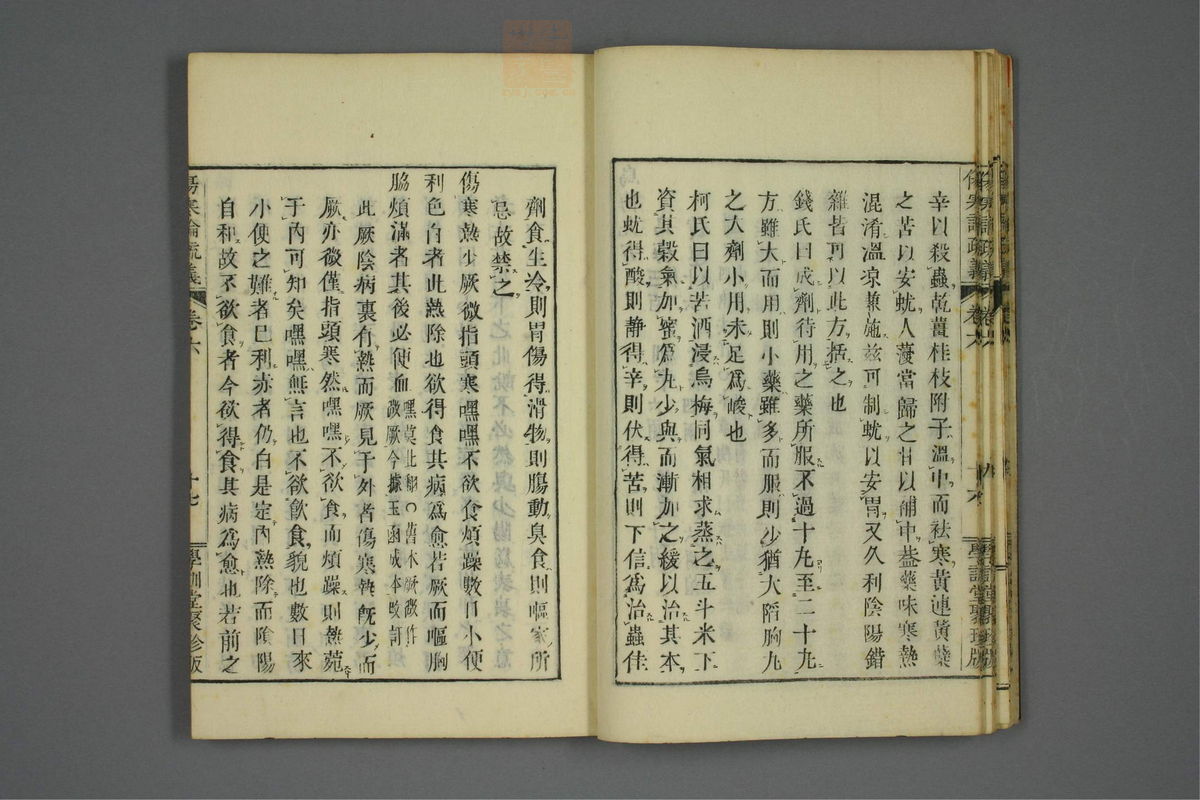 辛以殺蟲乾薑桂枝附子溫中而袪寒黃連黃蘗
之苦以安蚘人蓡當歸之甘以補中益藥味寒熱
混淆溫凉兼施玆可制蚘以安胃又久利陰陽錯
雜皆可以此方括之也
錢氏曰成劑待用之藥所服不過十九至二十九
方雖大而用則小藥雖多而服則少猶大陷胸丸
之大劑小用未足爲峻也
柯氏曰以苦酒浸烏梅同氣相求蒸之五斗米下
資其穀氣加蜜爲丸少與而漸加之緩以治其本
也蚘得酸則静得辛則伏得苦則下信爲治蟲佳
傷寒論疏義 卷六 十六 學訓堂聚珍版
劑食生冷則胃傷得滑物則腸動臭食則嘔家所
忌故禁之
傷寒熱少厥微指頭寒嘿嘿不欲食煩躁數日小便
利色白者此熱除也欲得食其病爲愈若厥而嘔胸
脇煩滿者其後必便血 嘿莫北翻○舊本厥微作微厥今據玉函成本改訂
此厥陰病裏有熱而厥見于外者傷寒熱旣少而
厥亦微僅指頭寒然嘿嘿不欲食而煩躁則熱菀
于內可知矣嘿嘿無言也不欲飮食貌也數日來
小便之難者已利赤者仍白是定內熱除而陰陽
自和故不欲食者今欲得食其病爲愈也若前之
傷寒論疏義 卷六 十七 學訓堂聚珍版